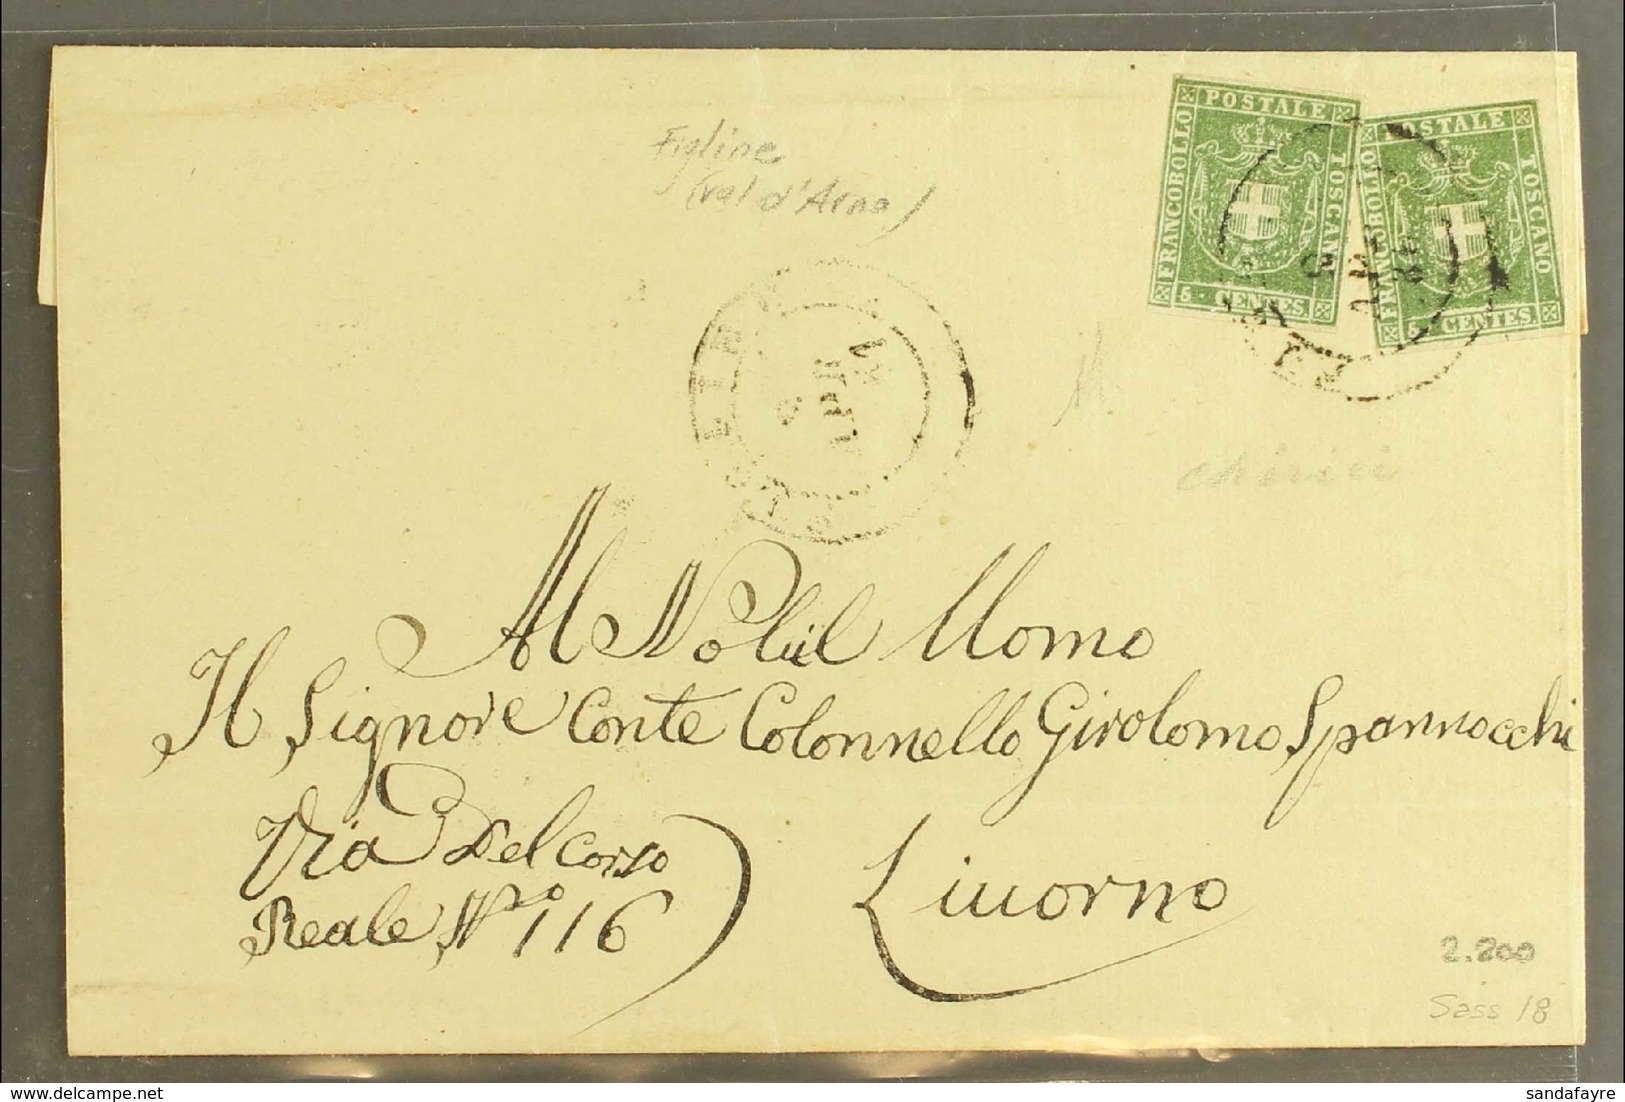 POSTALE
FRANCOBOLLO
TOSCANO
5 CENTES
POSTALE
FRANCOBOLLO
TOSCANO
5 CENTES.
Figline
(val d'Arno)
Al Nobil Uomo
Il Signore Conte Colonnello Girolomo Spannocchi
Via Del Corso
Reale Nro 116
Livorno
2.200
Sass 18
www.delcampe.net
sandafayre